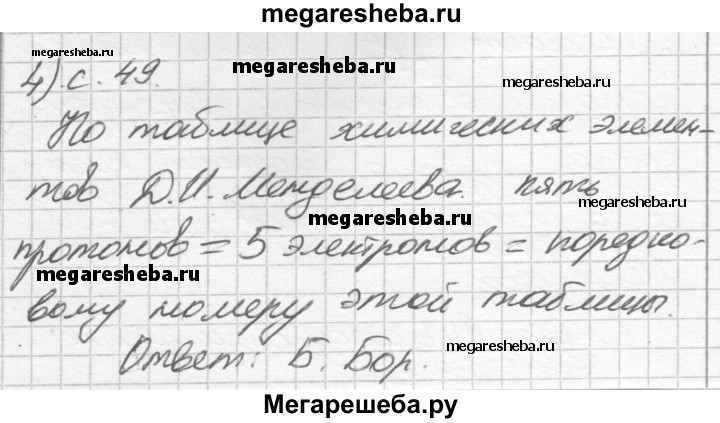 megaresheba.ru
megaresheba.ru
4) с. 49.
megaresheba.ru
megaresheba.ru
По таблице химических элемен-
тов Д.И. Менделеева. пять
megaresheba.ru
протонов = 5 электронов = порядко-
megaresheba.ru
вому номеру этой таблицы.
Ответ: Б. Бор.
megaresheba.ru
Мегарешеба.ру